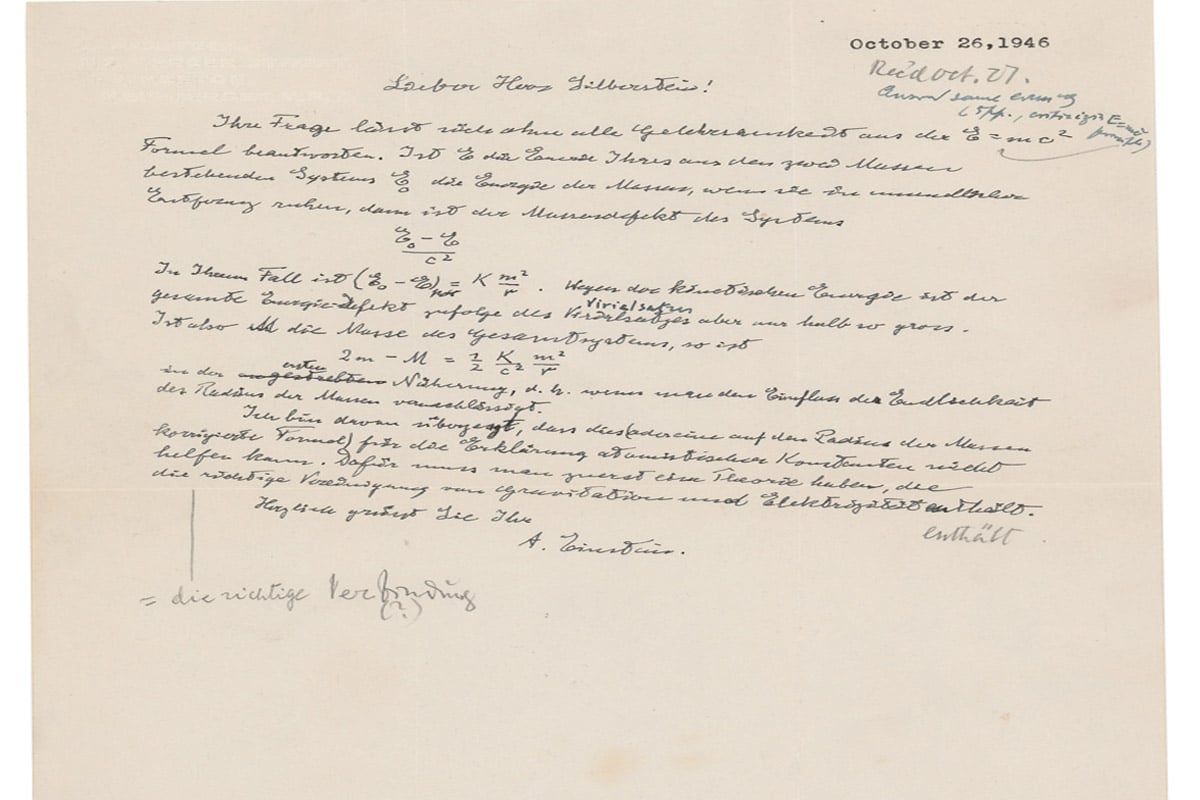 October 26,1946
Rec'd Oct. 27.
Answ'd same evening
(5pp., criticizing E=mc²
Lieber Herr Silberstein!
Ihre Frage lässt sich ohne alle Gelehrsamkeit aus der E = mc²
Formel beantworten. Ist E die Energie Ihres aus den zwei Massen
bestehenden Systems E₀ die Energie der Massen, wenn sie in unendlicher
Entfernung ruhen, dann ist der Massendefekt des Systems
E₀ − E
c²
In Ihrem Fall ist (E₀ − E) = K m²/r . Wegen der kinetischen Energie ist der
Virialsatzes
gesamte Energie-Defekt zufolge des Virialsatzes aber nur halb so gross.
Ist also M die Masse des Gesamtsystems, so ist
2m − M = 1/2 K/c² m²/r
ersten
in der angestrebten Näherung, d. h. wenn man den Einfluss der Endlichkeit
des Radius der Massen vernachlässigt.
Ich bin davon überzeugt, dass dies (oder eine auf den Radius der Massen
korrigierte Formel) für die Erklärung atomistischer Konstanten nicht
helfen kann. Dafür muss man zuerst eine Theorie haben, die
die richtige Vereinigung von Gravitation und Elektrizität enthält.
enthält
Herzlich grüsst Sie Ihr
A. Einstein.
= die richtige Verbindung
(?)